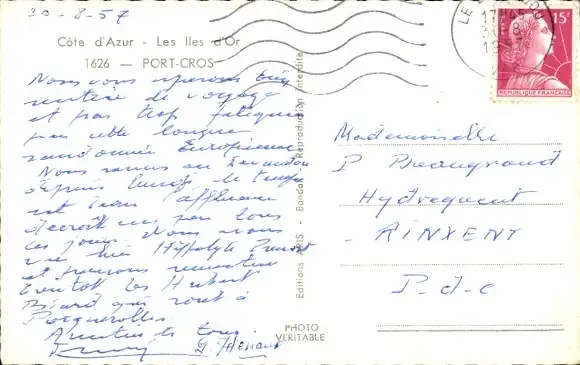 30-8-57
Côte d'Azur - Les Iles d'Or
1626 - PORT-CROS
Nous vous espérons bien
rentrée de voyage
et pas trop fatiguée
par cette longue
randonnée Européenne
Nous sommes au Lavandou
depuis lundi, le temps
est beau l'affluence
décroît un peu tous
ces jours. Nous avons
vu hier Hippolyte
et pensons rencontrer
bientôt les Hubert
Biard qui sont à
Porquerolles.
Amitiés à tous.
Editions ARIS - Reproduction Interdite
PHOTO
VERITABLE
LE LAVANDOU
11H45
30-8
19
15F
REPUBLIQUE FRANÇAISE
Mademoiselle
P Beaugrand
Hydrequent
RINXENT
P-d-C